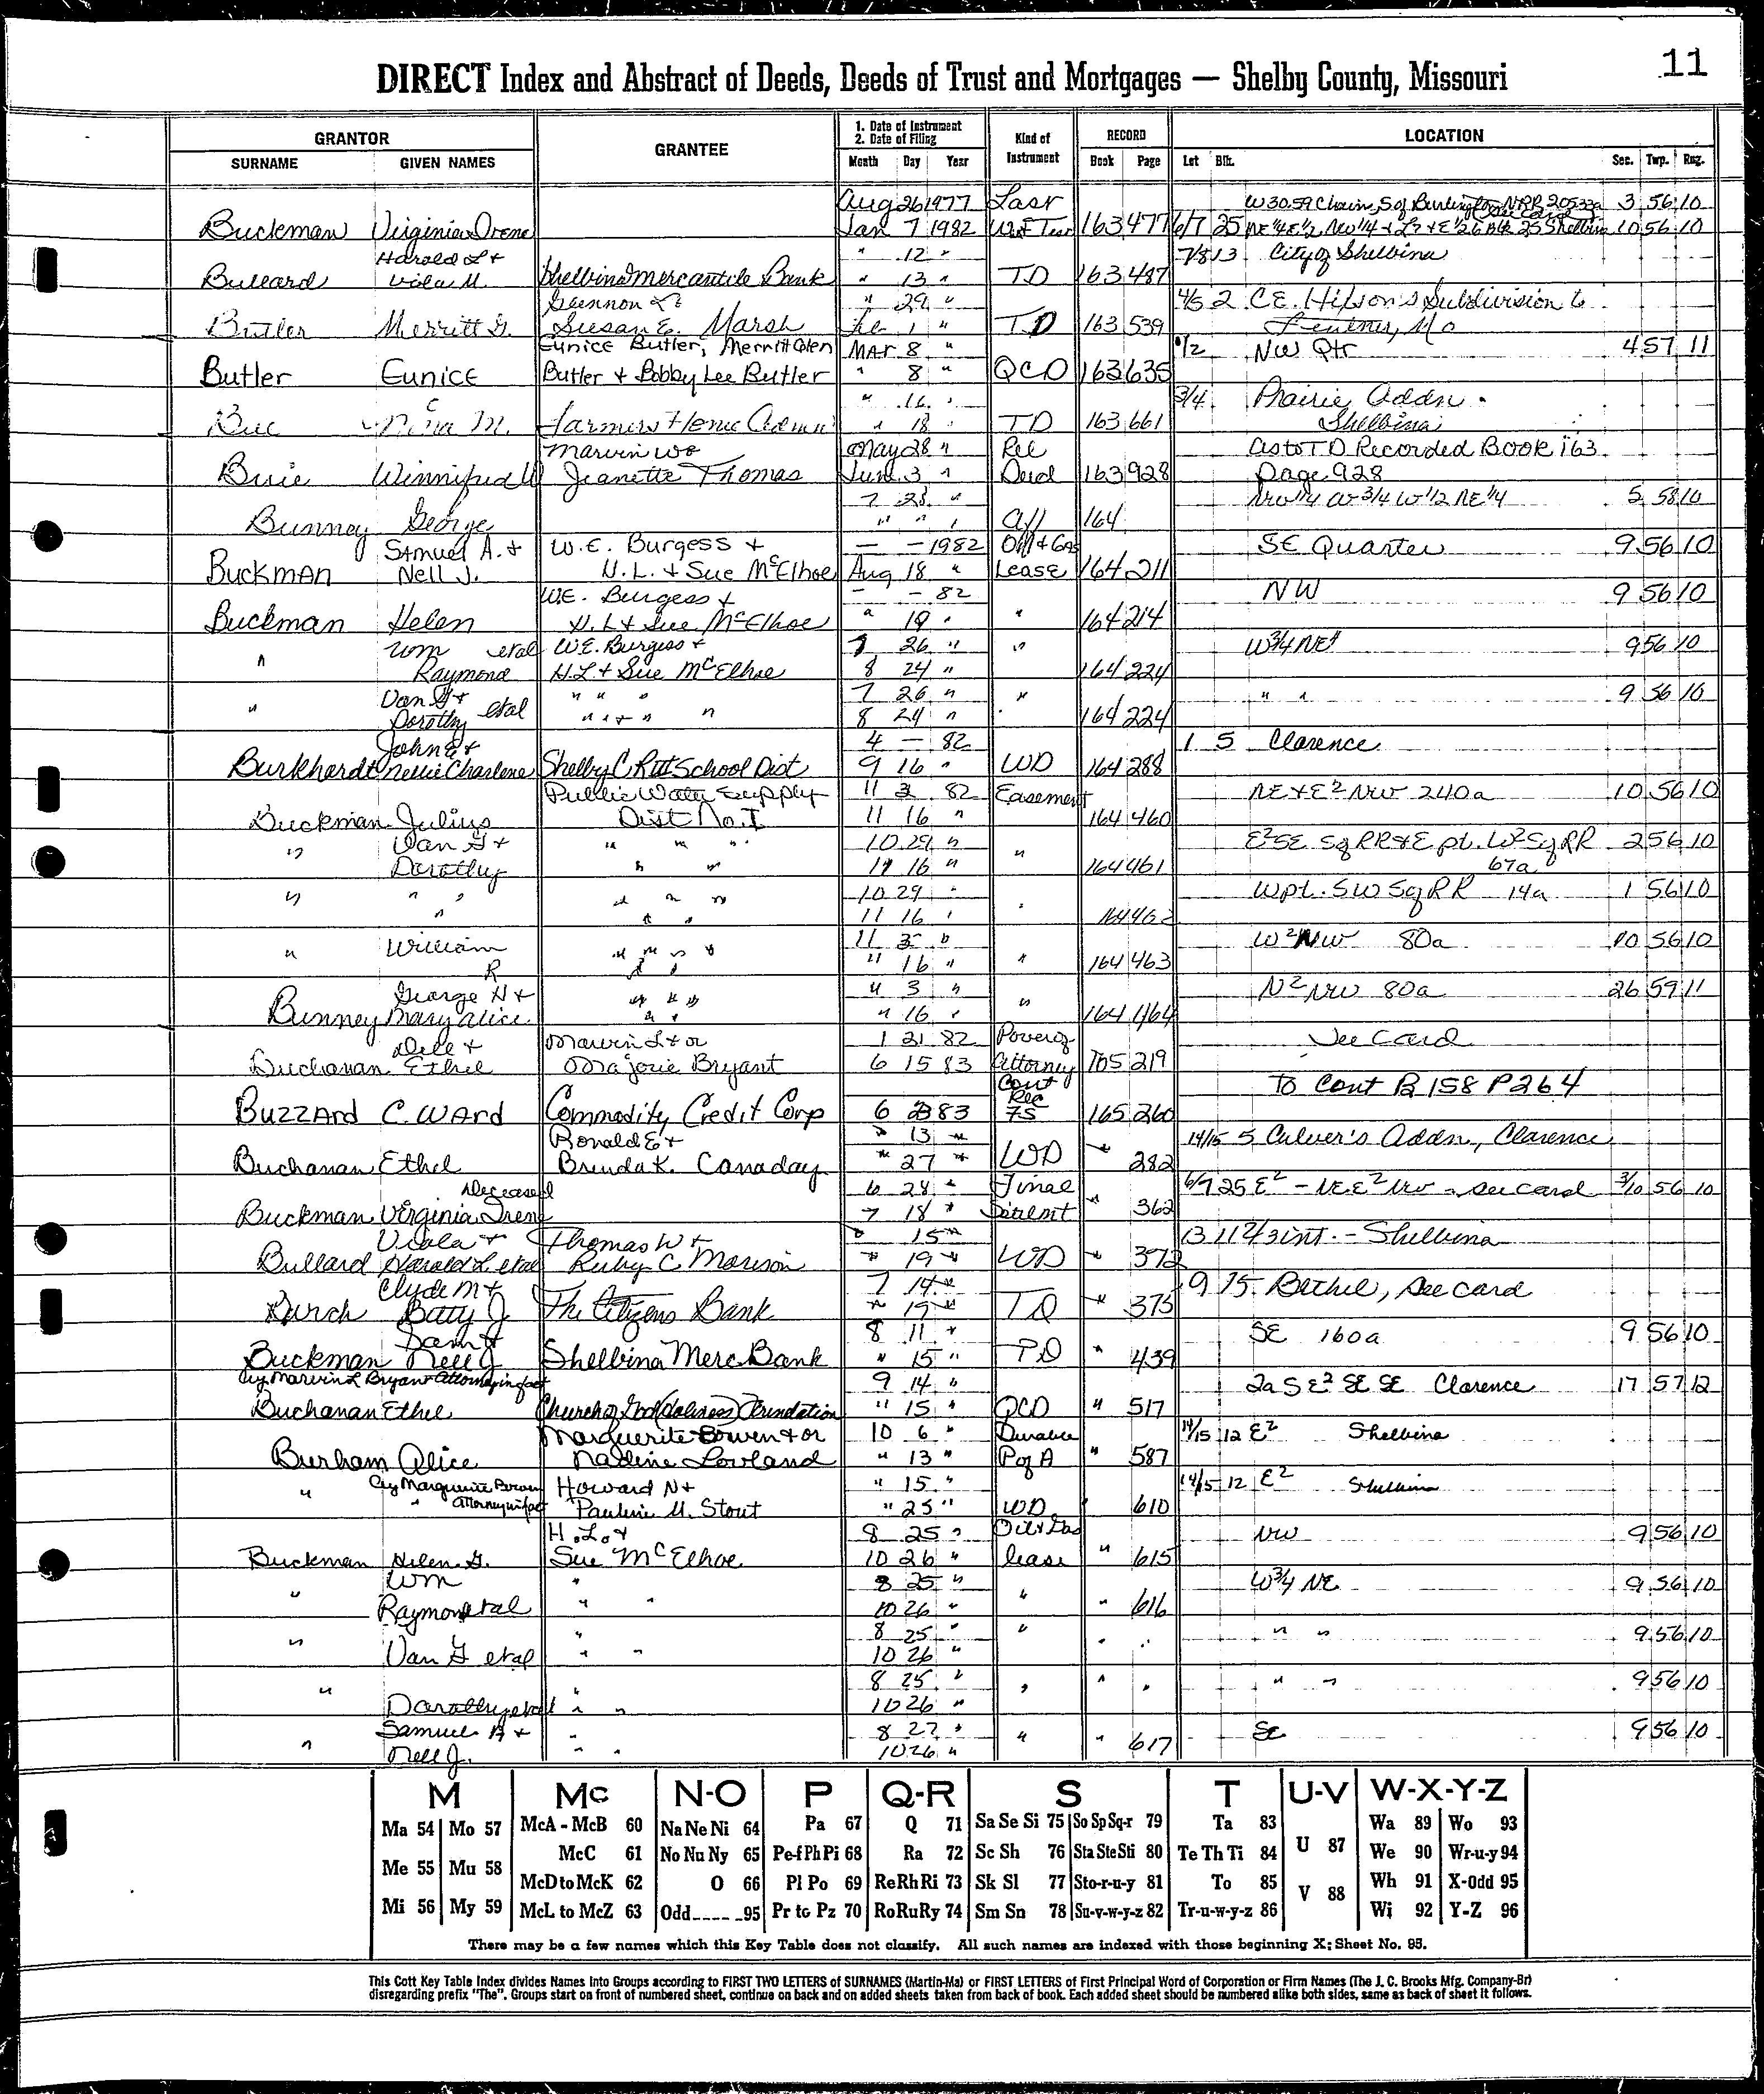 11
DIRECT Index and Abstract of Deeds, Deeds of Trust and Mortgages — Shelby County, Missouri
GRANTOR GRANTEE 1. Date of Instrument 2. Date of Filing Kind of Instrument RECORD LOCATION
SURNAME GIVEN NAMES Month Day Year Book Page Lot Blk. Sec. Twp. Rng.
Aug 26 1977 Last W 30.59 Chain, S of Burlington NRR 3 56 10
Buckman Virginia Irene Jan 7 1982 163 477 6/7 25 NE 1/4 E 1/2 NW 1/4 Shelbina 10 56 10
Harold L + " 12 " 7/8 13 City of Shelbina
Bullard Viola M. Shelbina Mercantile Bank " 13 " TD 163 487
Glennon L + " 29 " 4/5 2 C.E. Hilson's Subdivision to
Butler Merritt G. Susan E. Marsh Feb 1 " TD 163 539 Lentner, Mo
Eunice Butler, Merritt Glen Mar 8 " 1/2 NW Qtr 4 57 11
Butler Eunice Butler + Bobby Lee Butler " 8 " QCD 163 635
" 16 " 3/4 Prairie Addn.
Nina M. Farmers Home Admn " 18 " TD 163 661 Shelbina
Marvin W o May 28 " Rel as to TD Recorded Book 163
Buie Winnifred Jeanette Thomas June 3 " Deed 163 928 Page 928
7 28 " NW 1/4 W 3/4 W 1/2 NE 1/4 5 58 10
Bunney George " " " Aff 164
Samuel A. + W.E. Burgess + — — 1982 Oil + Gas SE Quarter 9 56 10
Buckman Nell J. H.L. + Sue McElhoe Aug 18 " Lease 164 211
W.E. Burgess + — — 82 NW 9 56 10
Buckman Helen H.L + Sue McElhoe " 19 " " 164 214
Wm etal W.E. Burgess + 7 26 " " W 3/4 NE 9 56 10
" Raymond H.L + Sue McElhoe 8 24 " 164 224
Van G + " " " 7 26 " " " " 9 56 10
" Dorothy etal " " + " " 8 24 " 164 224
John E + 4 — 82 1 5 Clarence
Burkhardt Nellie Charlene Shelby C. School Dist 9 16 " WD 164 288
Public Water Supply 11 3 82 Easement NE + E2 NW 240a 10 56 10
Buckman Julius Dist No. I 11 16 " 164 460
" Van G + " " " 10 29 " " E2SE S of RR & E pt. W2 S of RR 2 56 10
Dorothy " " 11 16 " 164 461 67a
" " " " " " 10 29 " " W pt. SW S of RR 14a 1 56 10
" " " 11 16 " 164 462
" William " " " " 11 3 " W2NW 80a 10 56 10
R " " " 16 " " 164 463
George H + " " " " 3 " " N2 NW 80a 26 59 11
Bunney Mary Alice " " " 16 " 164 464
Dell + Marvin L + or 1 21 82 Power of See Card
Buchanan Ethel Marjorie Bryant 6 15 83 Attorney 165 219
Cont Rec To Cont B 158 P 264
Buzzard C. Ward Commodity Credit Corp 6 83 FS 165 260
Ronald E + " 13 " 14/15 5 Culver's Addn, Clarence
Buchanan Ethel Brenda K. Canaday " 27 " WD " 282
Deceased 6 28 " Final 6/7 25 E2 - NE E2 NW - See card 3/10 56 10
Buckman Virginia Irene 7 18 " " 362
Viola + Thomas W + 15 " Shelbina
Bullard Harold L etal Ruby C Morison " 19 " WD " 372
Clyde M + 7 14 " 9 15 Bethel, See card
Burch Betty J The Citizens Bank " 19 " TD " 375
Sam + 8 11 " SE 160a 9 56 10
Buckman Nell J Shelbina Merc. Bank " 15 " TD " 439
by Marvin L Bryant Attorney in fact 9 14 " 2a S E2 SE SE Clarence 17 57 12
Buchanan Ethel Church of God (Holiness) Foundation " 15 " QCD " 517
Marguerite Bowen + or 10 6 " Durable 14/15 12 E2 Shelbina
Burham Alice Nadine Lowland " 13 " P of A " 587
" By Marguerite Bowen Howard N + " 15 " 14/15 12 E2 Shelbina
" Attorney in fact Pauline M. Stout " 25 " WD " 610
H.L. + 8 25 " Oil + Gas NW 9 56 10
Buckman Helen G. Sue McElhoe 10 26 " lease " 615
Wm " 8 25 " W 3/4 NE 9 56 10
" Raymond etal " " 10 26 " " " 616
" " 8 25 " " " " 9 56 10
Van G etal " " 10 26 " " "
" " 8 25 " " " " " " 9 56 10
Dorothy etal " " 10 26 "
Samuel A + 8 27 " " SE 9 56 10
" Nell J. " " 10 26 " " 617
M Mc N-O P Q-R S T U-V W-X-Y-Z
Ma 54 Mo 57 McA - McB 60 Na Ne Ni 64 Pa 67 Q 71 Sa Se Si 75 So Sp Sq-r 79 Ta 83 U 87 Wa 89 Wo 93
Me 55 Mu 58 McC 61 No Nu Ny 65 Pe-f Ph Pi 68 Ra 72 Sc Sh 76 Sta Ste Sti 80 Te Th Ti 84 We 90 Wr-u-y 94
McD to McK 62 O 66 Pl Po 69 Re Rh Ri 73 Sk Sl 77 Sto-r-u-y 81 To 85 V 88 Wh 91 X-Odd 95
Mi 56 My 59 McL to McZ 63 Odd 95 Pr to Pz 70 Ro Ru Ry 74 Sm Sn 78 Su-v-w-y-z 82 Tr-u-w-y-z 86 Wi 92 Y-Z 96
There may be a few names which this Key Table does not classify. All such names are indexed with those beginning X; Sheet No. 95.
This Cott Key Table Index divides Names into Groups according to FIRST TWO LETTERS of SURNAMES (Martin-Ma) or FIRST LETTERS of First Principal Word of Corporation or Firm Names (The J. C. Brooks Mfg. Company-Br)
disregarding prefix "The". Groups start on front of numbered sheet, continue on back and on added sheets taken from back of book. Each added sheet should be numbered alike both sides, same as back of sheet it follows.